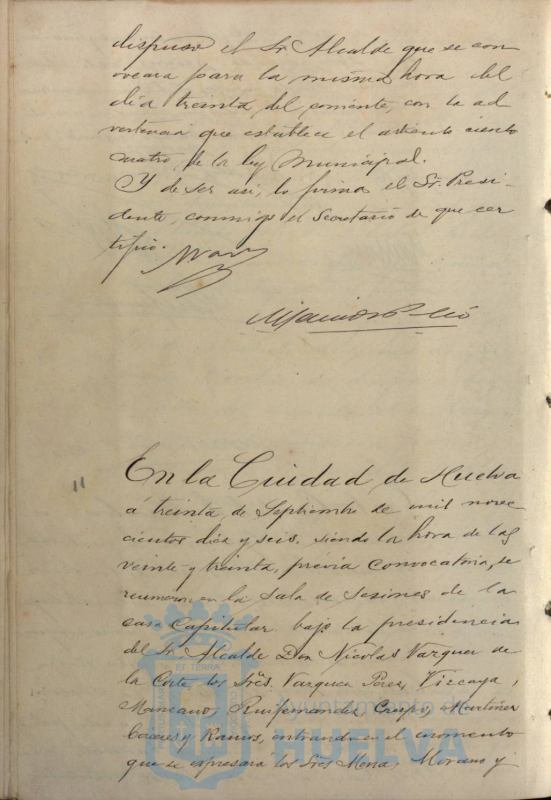 dispuso el Sr. Alcalde que se con
vocara para la misma hora del
dia treinta del corriente, con la ad
vertencia que establece el articulo ciento
cuatro de la ley Municipal.
Y de ser asi, lo firma el Sr. Presi-
dente, conmigo el Secretario de que cer
tifico.
11
En la Ciudad de Huelva
á treinta de Septiembre de mil nove-
cientos diez y seis, siendo la hora de las
veinte y treinta, prévia convocatoria, se
reunieron en la Sala de Sesiones de la
casa Capitular bajo la presidencia
del Sr. Alcalde Don Nicolas Vazquez de
la Corte, los Sres. Vazquez Perez, Vizcaya,
Manzano, Ruifernandez, Crespo, Martinez
Caceres y Ramos, entrando en el momento
que se expresara los Sres Mora, Moreno y
ET TERRA
Ayuntamiento de
HUELVA